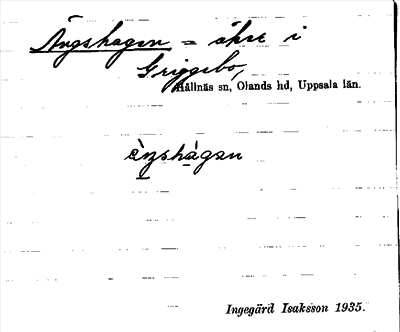 Ängshagen = åker i
Griggebo,
Hållnäs sn, Olands hd, Uppsala län.
ä̀ŋshàgan
Ingegärd Isaksson 1935.